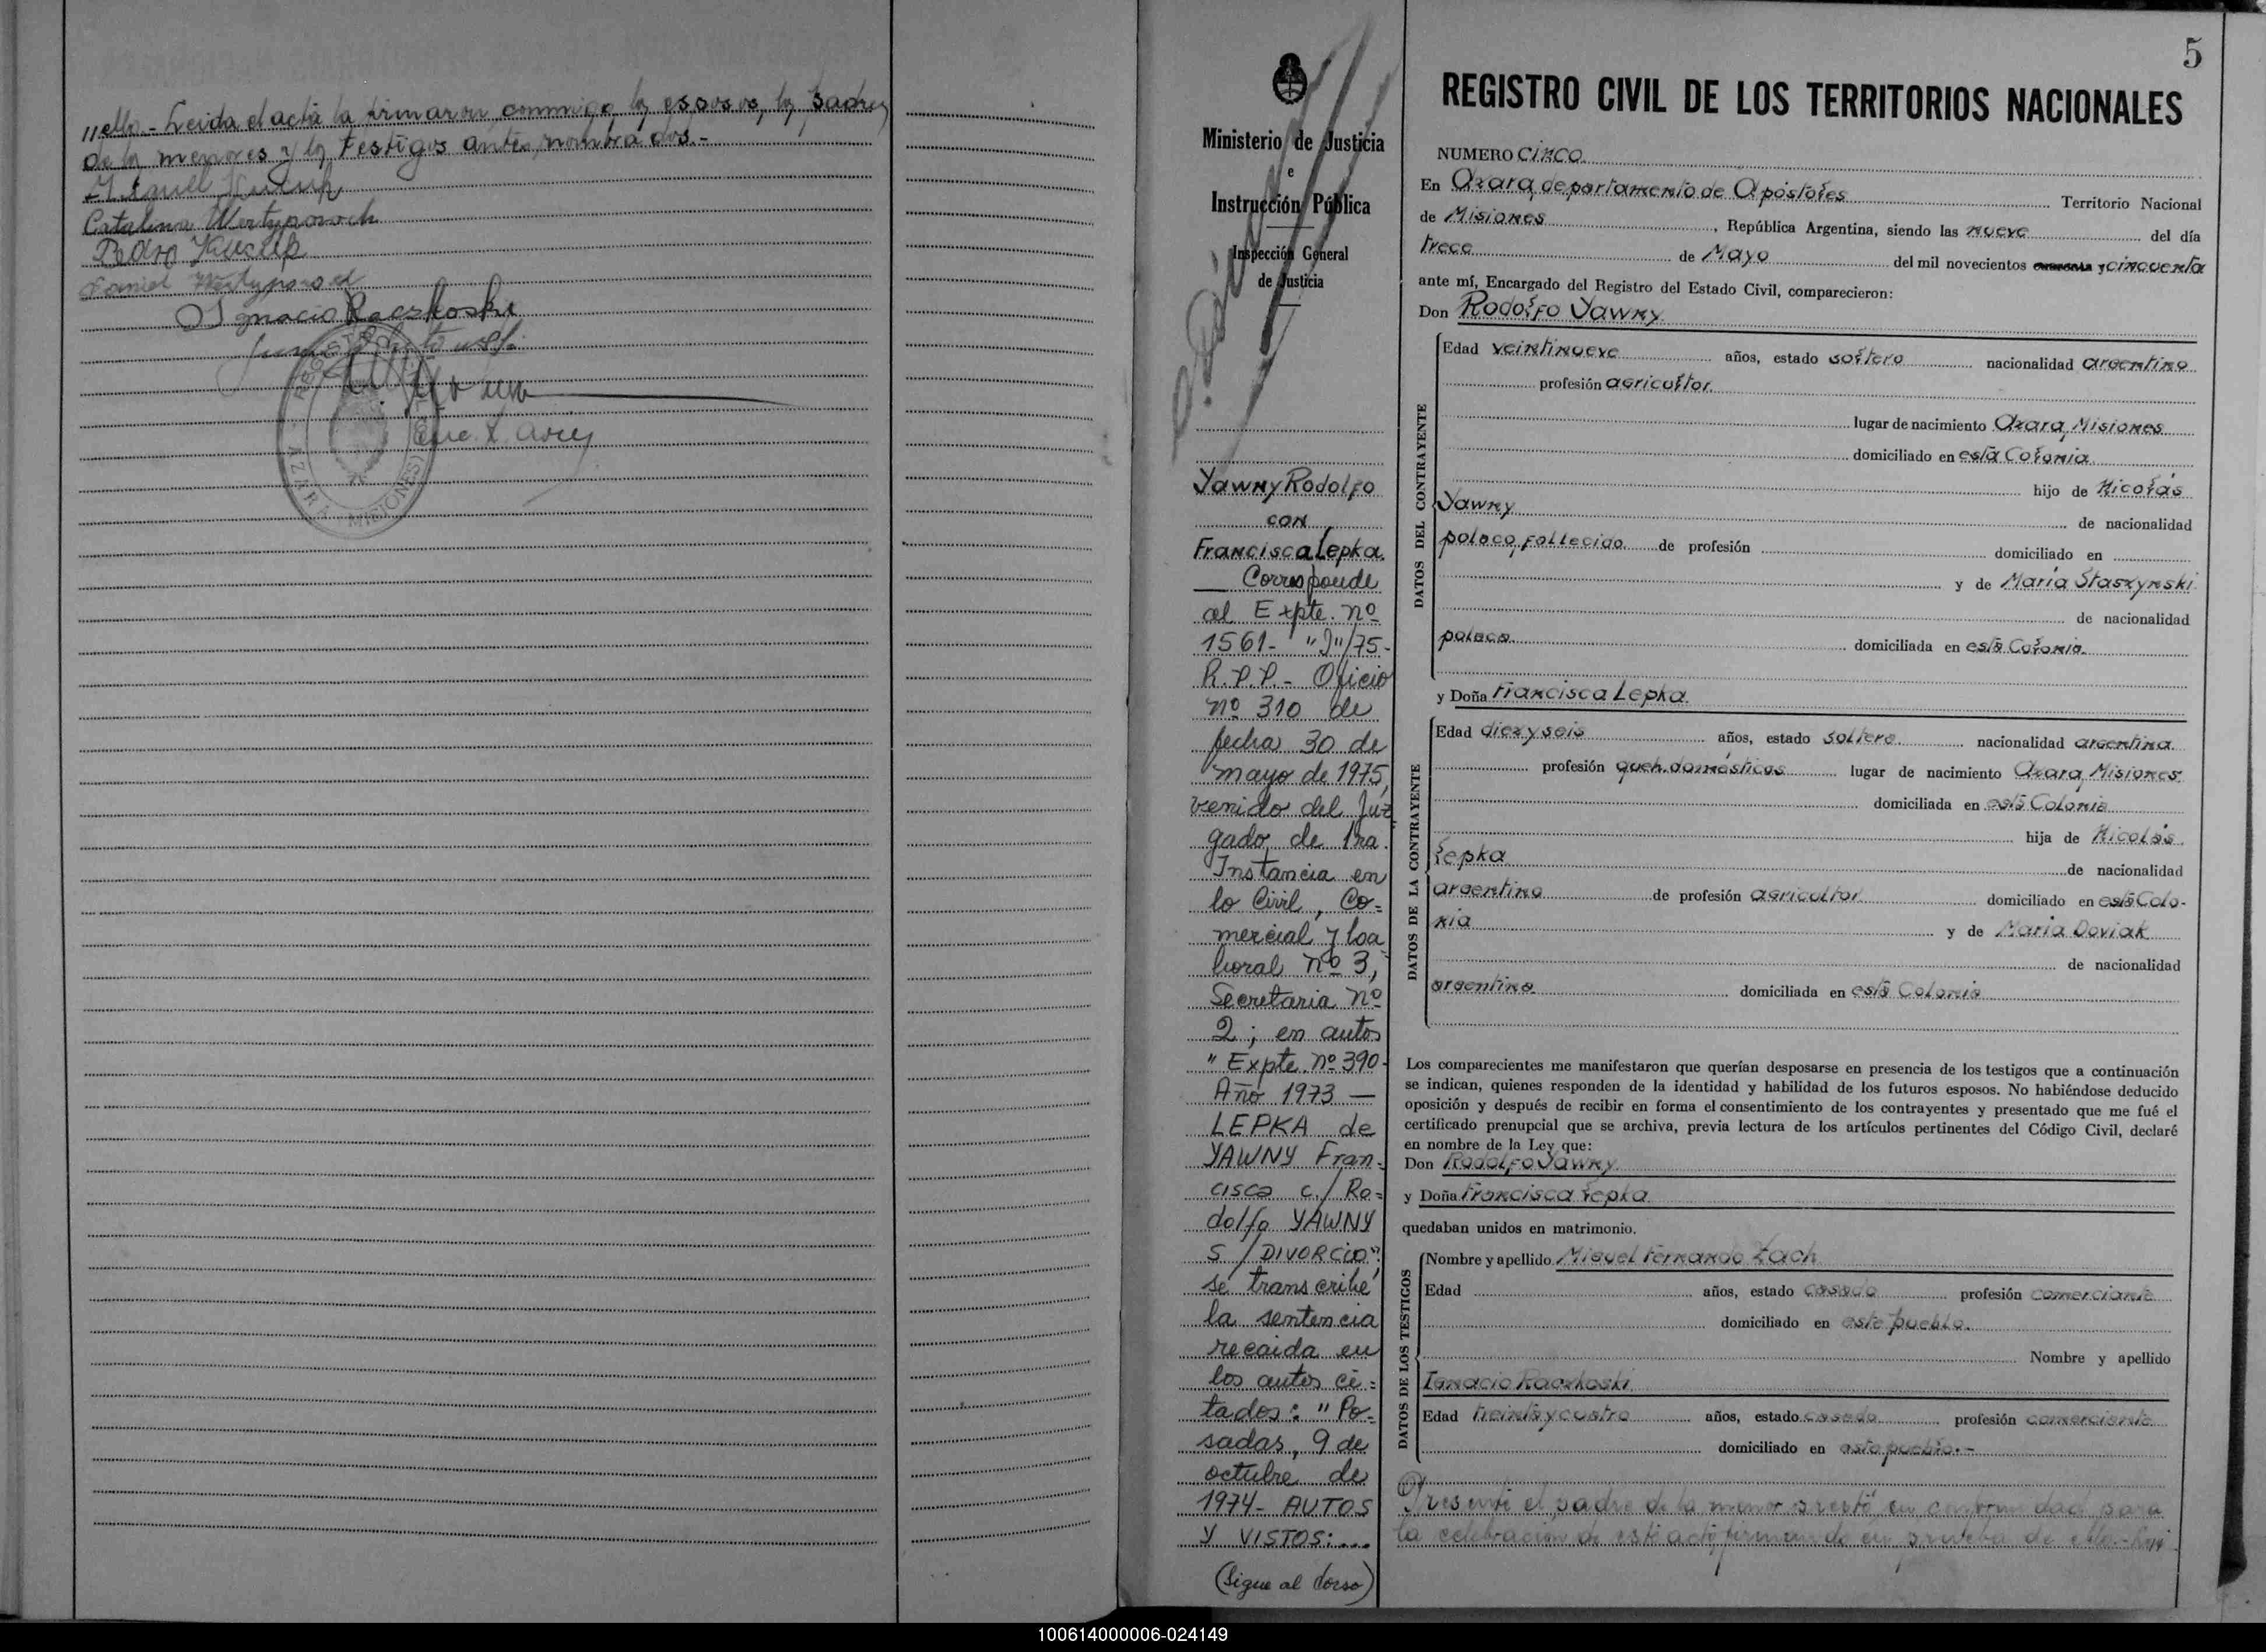 "ello.- Leida el acta la firmaron conmigo los esposos, los padres
de los menores y los testigos antes nombrados.-
Miguel
Catalina
Pedro
Daniel
Ignacio Raczkoski
Enc. R. Civil
AZARA MISIONES
5
Ministerio de Justicia
e
Instrucción Pública
Inspección General
de Justicia
Yawny Rodolfo
con
Francisca Lepka.
Corresponde
al Expte. nº
1561- "J"/75-
R.P.P.- Oficio
nº 310 de
fecha 30 de
mayo de 1975,
venido del Juz
gado de 1ra.
Instancia en
lo Civil, Co=
mercial y Laa
boral nº 3,
Secretaria nº
2; en autos
"Expte. nº 390-
Año 1973 —
LEPKA de
YAWNY Fran=
cisca c./ Ro=
dolfo YAWNY
S/ DIVORCIO";
se transcribe
la sentencia
recaida en
los autos ci=
tados: "Po=
sadas, 9 de
octubre de
1974- AUTOS
Y VISTOS:....
(Sigue al dorso)
REGISTRO CIVIL DE LOS TERRITORIOS NACIONALES
NUMERO cinco.
En Azara, departamento de Apóstoles Territorio Nacional
de Misiones, República Argentina, siendo las nueve del día
trece de Mayo del mil novecientos cuarenta y cincuenta
ante mí, Encargado del Registro del Estado Civil, comparecieron:
Don Rodolfo Yawny
DATOS DEL CONTRAYENTE
Edad veintinueve años, estado soltero nacionalidad argentino
profesión agricultor.
lugar de nacimiento Azara, Misiones
domiciliado en esta Colonia
hijo de Nicolás
Yawny de nacionalidad
polaco, fallecido de profesión domiciliado en
y de Maria Staszynski
de nacionalidad
polaca domiciliada en esta Colonia.
y Doña Francisca Lepka.
DATOS DE LA CONTRAYENTE
Edad diez y seis años, estado soltera nacionalidad argentina
profesión queh. domésticos lugar de nacimiento Azara, Misiones
domiciliada en esta Colonia
hija de Nicolás
Lepka de nacionalidad
argentino de profesión agricultor domiciliado en esta Colo-
nia y de Maria Doviak
de nacionalidad
argentina domiciliada en esta Colonia
Los comparecientes me manifestaron que querían desposarse en presencia de los testigos que a continuación
se indican, quienes responden de la identidad y habilidad de los futuros esposos. No habiéndose deducido
oposición y después de recibir en forma el consentimiento de los contrayentes y presentado que me fué el
certificado prenupcial que se archiva, previa lectura de los artículos pertinentes del Código Civil, declaré
en nombre de la Ley que:
Don Rodolfo Yawny
y Doña Francisca Lepka
quedaban unidos en matrimonio.
DATOS DE LOS TESTIGOS
Nombre y apellido Miguel Fernando Zach
Edad años, estado casado profesión comerciante
domiciliado en este pueblo.
Nombre y apellido
Ignacio Raczkoski
Edad treinta y cuatro años, estado casado profesión comerciante
domiciliado en este pueblo.-
Presente el padre de la menor prestó su conformidad para
la celebración de este acto firmando en prueba de ello.-
100614000006-024149